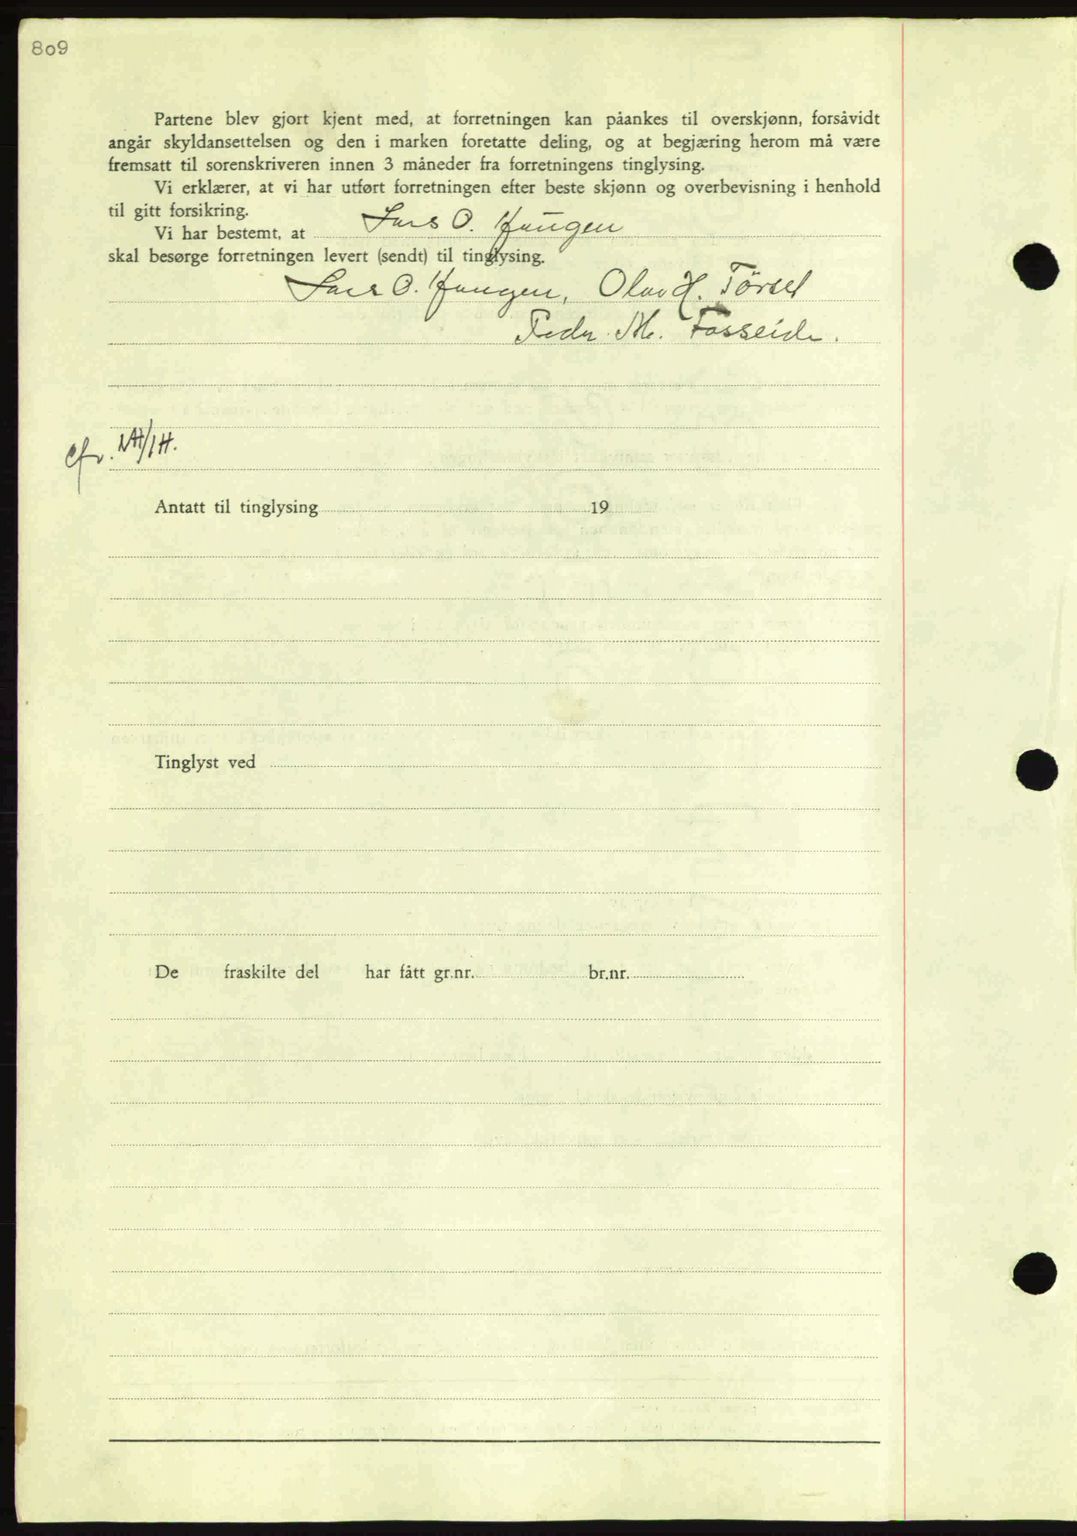 809
Partene blev gjort kjent med, at forretningen kan påankes til overskjønn, forsåvidt
angår skyldansettelsen og den i marken foretatte deling, og at begjæring herom må være
fremsatt til sorenskriveren innen 3 måneder fra forretningens tinglysing.
Vi erklærer, at vi har utført forretningen efter beste skjønn og overbevisning i henhold
til gitt forsikring.
Vi har bestemt, at Lars O. Haugen
skal besørge forretningen levert (sendt) til tinglysing.
Lars O. Haugen, Olav H. Tørset
Peder M. Fosseide.
Cfr.
Antatt til tinglysing 19
Tinglyst ved
De fraskilte del har fått gr.nr. br.nr.